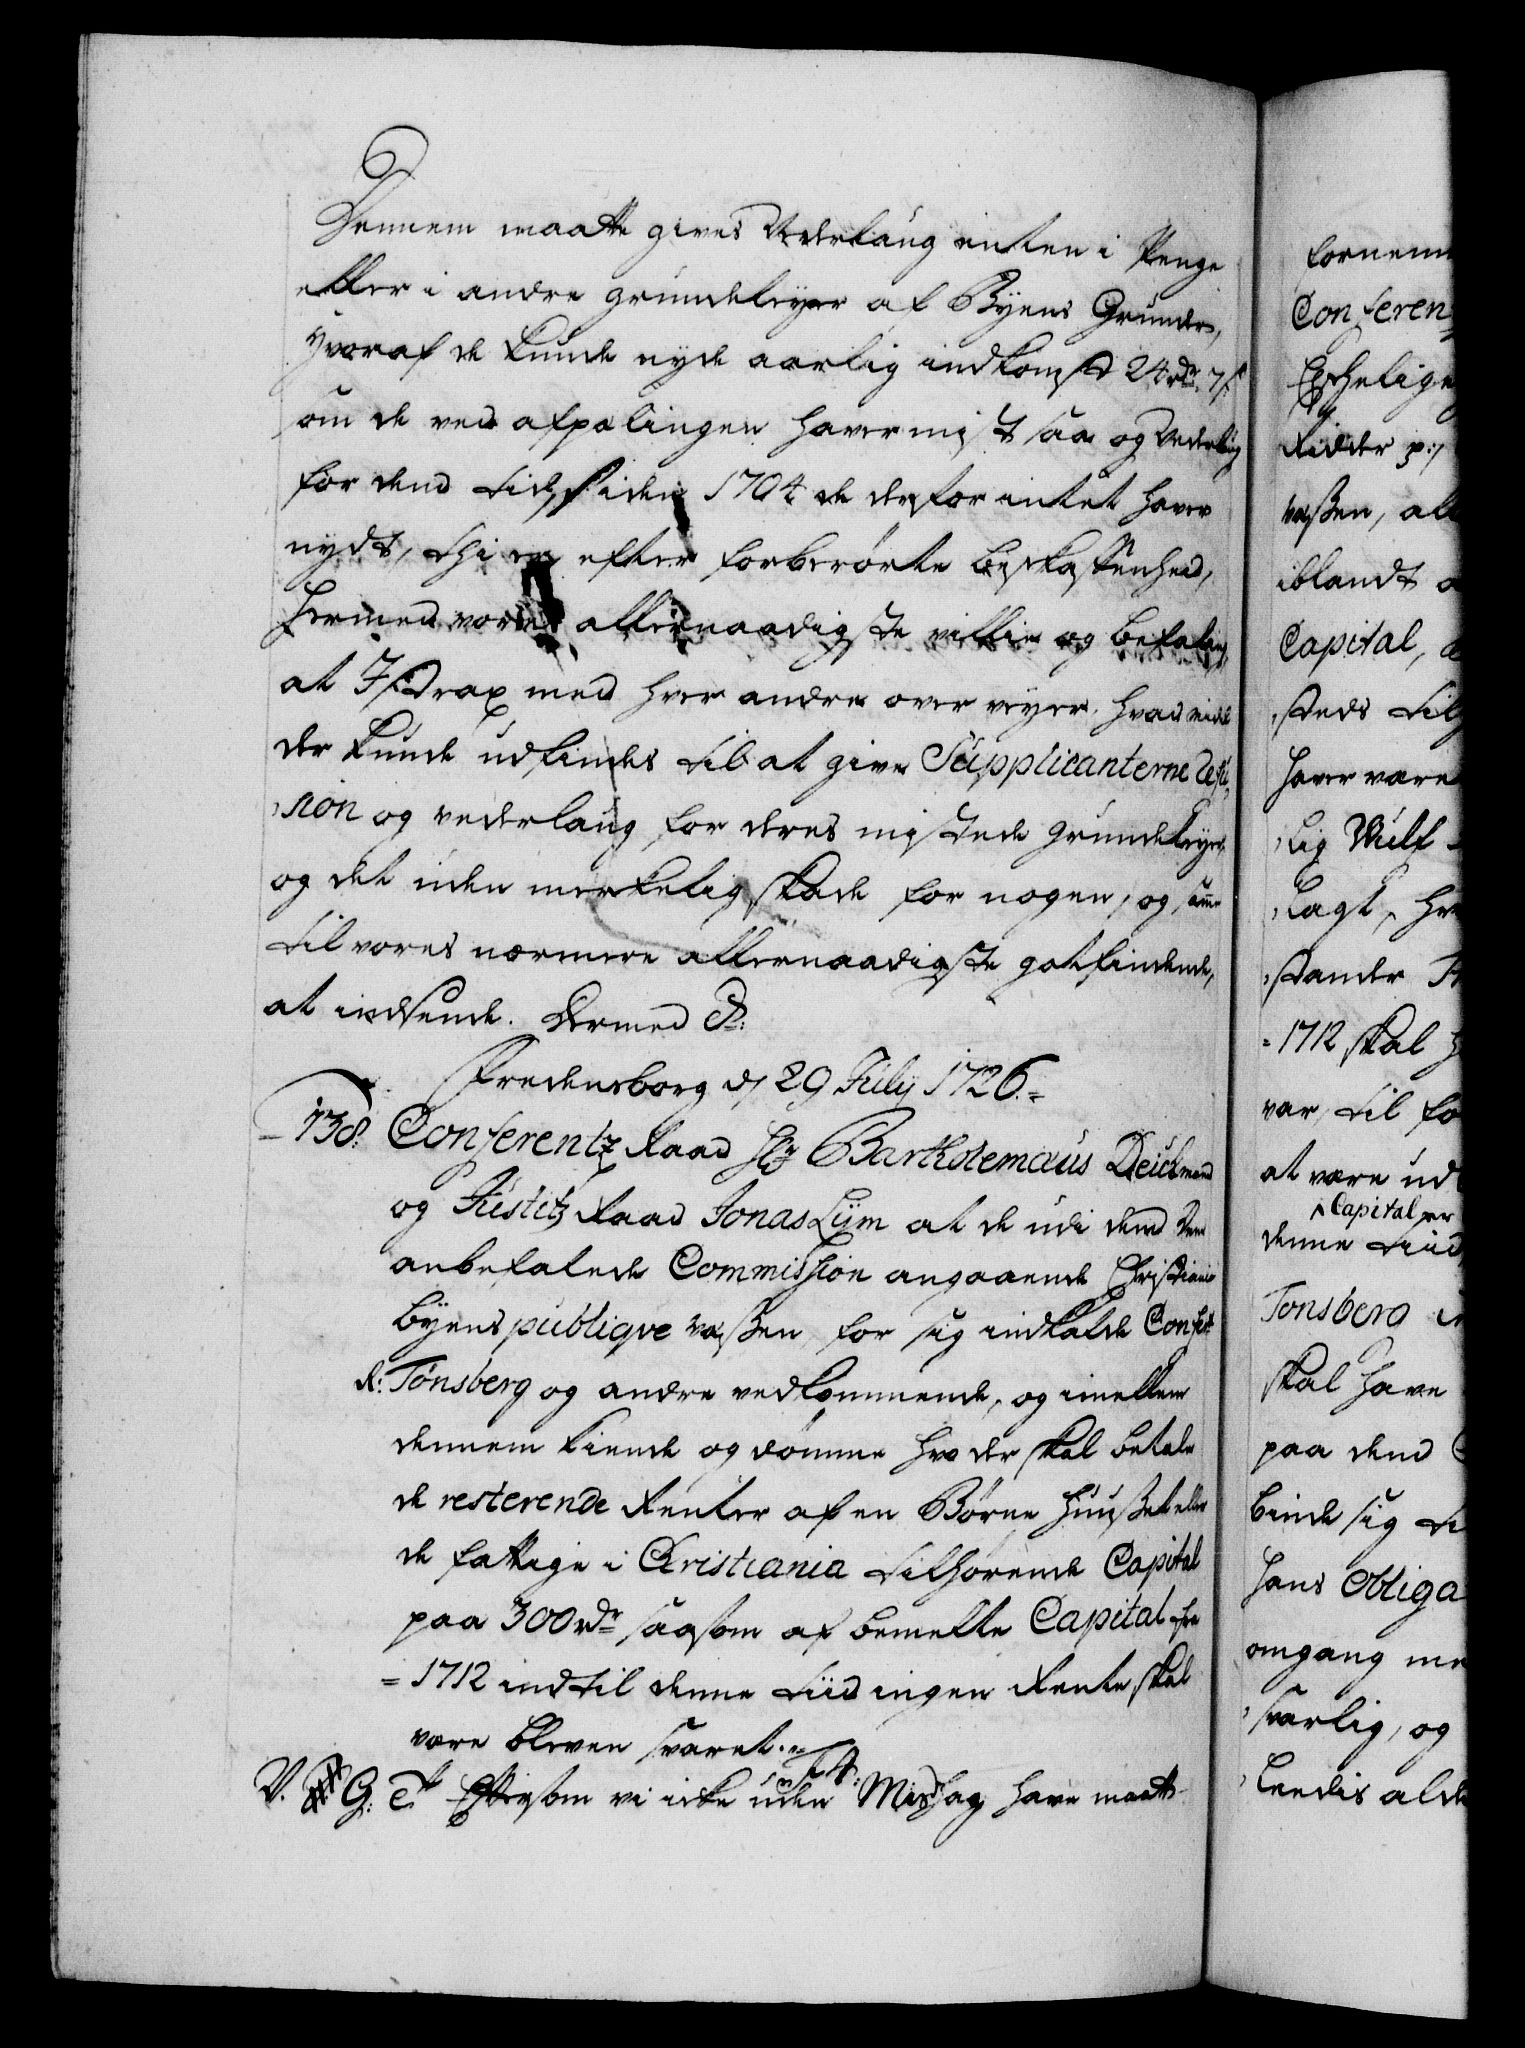 Dennem maatte gives Vederlaug enten i Penge
eller i andre grundeleyer af Byens Grunder,
hvoraf de kunde nyde aarlig indkomst 24 rdr. 7 s
som de ved afpælingen haver mist saa og Vederlaug
for dend tid siden 1704 de derfor intet haver
nydt, thi er efter forberørte beskaffenhed,
hermed vores allernaadigste villie og befaling,
at I strax med hver andre overveyer, hvad middel
der kunde udfindes til at give Supplicanterne Refu-
sion og vederlaug for deres mistede grundeleyer,
og det uden merkelig skade for nogen, og samme
til vores nærmere allernaadigste gotfindende,
at indsende. Dermed &c:
Fredensborg d/ 29 July 1726.
138. Conferentz Raad Hr Bartholemæus Deichmand
og Justitz Raad Jonas Lijm at de udi dend Dem
anbefalede Commission angaaende Christiania
Byens publiqve væßen, for sig indkalde Confer:
R: Tönsberg og andre vedkommende, og imellem
dennem kiende og dömme hvo der skal betale
de resterende Renter af en Börne Huußet eller
de fattige i Christiania tilhörende Capital
paa 300 rdr saasom af bemelte Capital fra
1712 indtil denne tiid ingen Rente skal
være bleven svaret.
V. G: T Eftersom vi icke uden Mishag have maatt
fornem
Conferen
Echelige
Ridder p:/
væßen, all
iblandt a
Capital, d
steds til
haver være
lig Wulf
lagt, hv
stander
1712 skal h
var, til fo
at være ud
Capital er
denne tiid
Tonsberg
skal have
paa dend
binde sig ti
hans Obliga
omgang me
svarlig, og
leedis alde